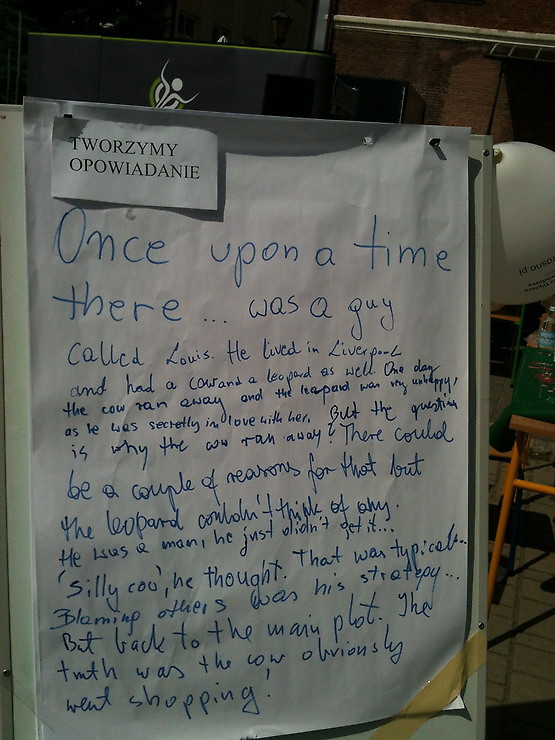 TWORZYMY
OPOWIADANIE
Once upon a time
there ... was a guy
called Louis. He lived in Liverpool
and had a cow and a leopard as well. One day
the cow ran away and the leopard was very unhappy,
as he was secretly in love with her. But the question
is why the cow ran away? There could
be a couple of reasons for that but
the leopard couldn't think of any.
He was a man, he just didn't get it...
'Silly coo', he thought. That was typical...
Blaming others was his strategy...
But back to the main plot. The
truth was the cow obviously
went shopping!
rosno.pl